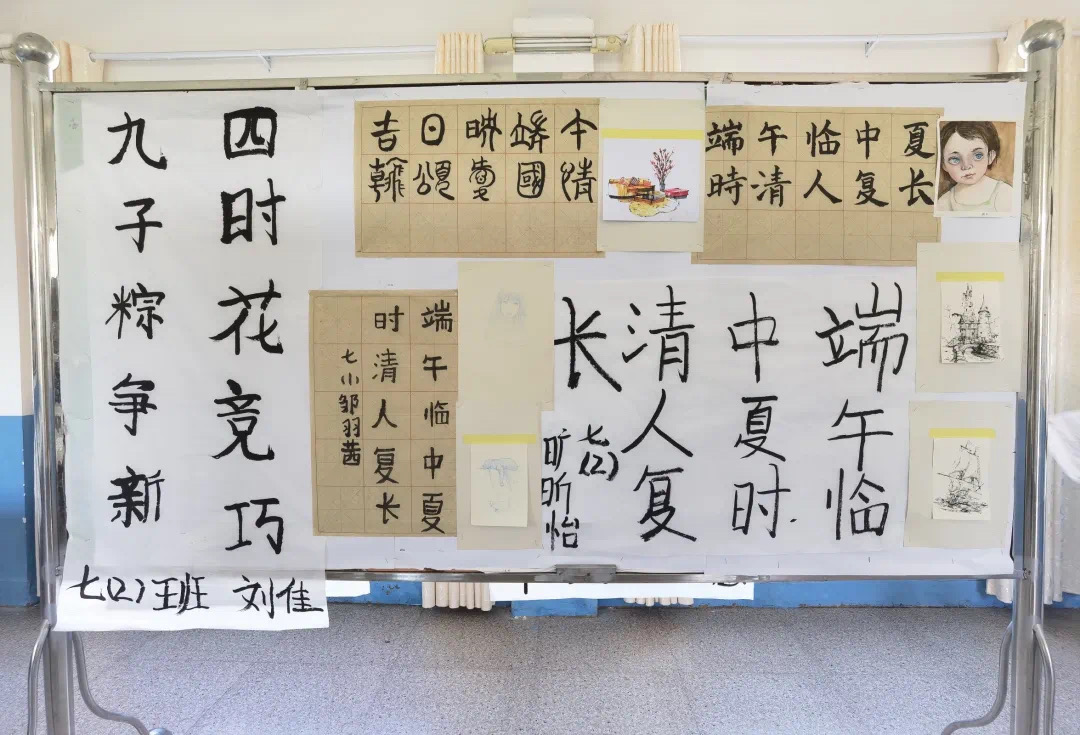 四时花竞巧
九子粽争新
七(2)班 刘佳
吉日映端午
翰頌愛國情
端午临中夏
時清人复长
端午临中夏
时清人复长
七小邹羽茜
端午临
中夏时
清人复
长
七(2)
旷昕怡